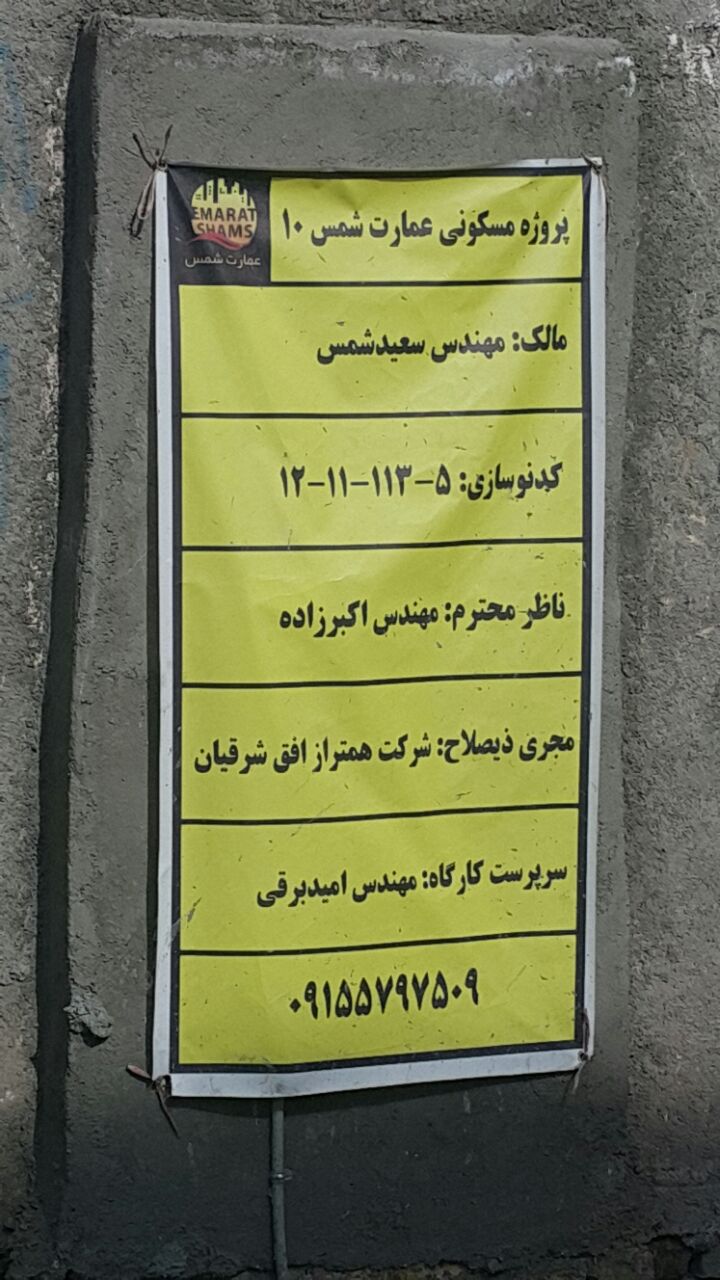 EMARAT
SHAMS
عمارت شمس
پروژه مسکونی عمارت شمس ۱۰
مالک: مهندس سعیدشمس
کدنوسازی: ۵-۱۱۳-۱۱-۱۲
ناظر محترم: مهندس اکبرزاده
مجری ذیصلاح: شرکت همتراز افق شرقیان
سرپرست کارگاه: مهندس امیدبرقی
۰۹۱۵۵۷۹۷۵۰۹